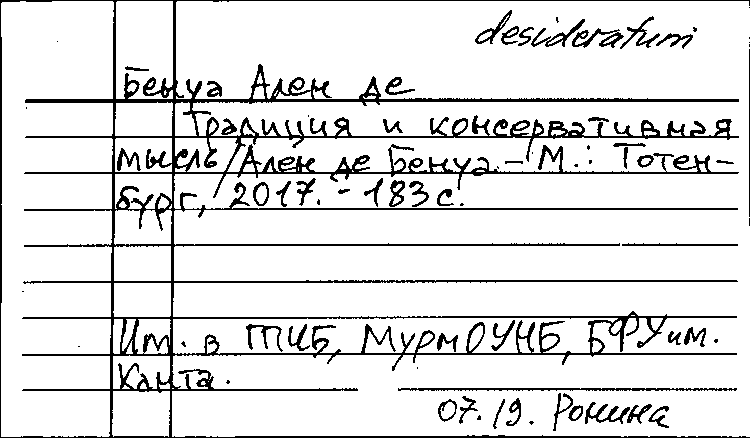 desideratum
Бенуа Ален де
Традиция и консервативная
мысль/Ален де Бенуа.- М.: Тотен-
бург, 2017. - 183 с.
Им. в ГПИБ, МурмОУНБ, БФУ им.
Канта.
07.19. Ронина